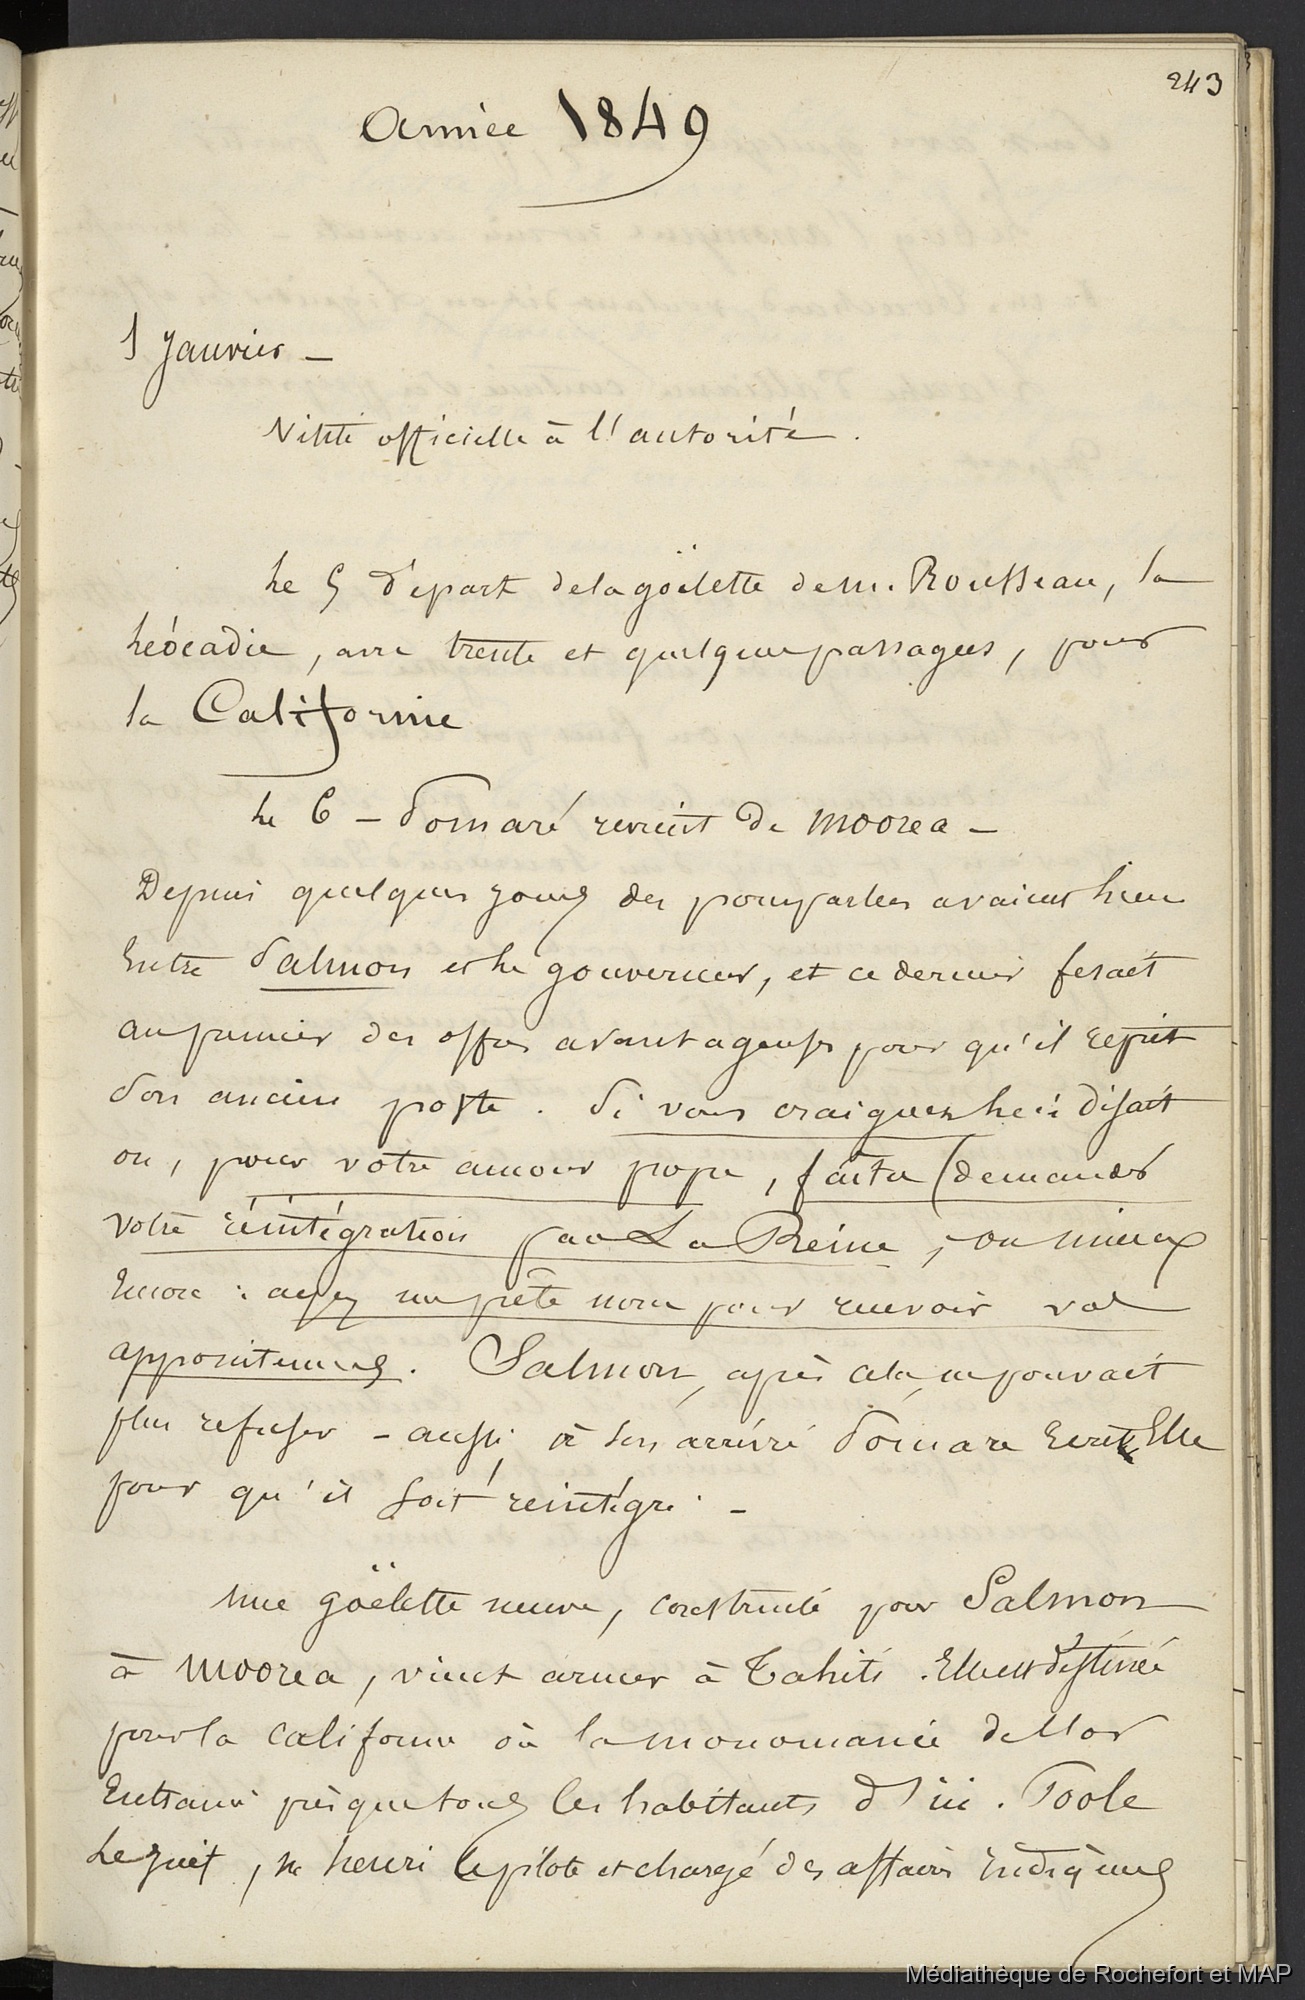 243
Année 1849
1 Janvier —
Visite officielle à l'autorité.
Le 5 départ de la goëlette de m. Rousseau, la
Léocadie, avec trente et quelques passagers, pour
la Californie
Le 6 — Pomaré revient de Moorea —
Depuis quelques jours des pourparlers avaient lieu
Entre Salmon et le gouverneur, et ce dernier fesait
au premier des offres avantageuses pour qu'il reprit
son ancien poste. Si vous craignez lui disait
on, pour votre amour propre, faites demander
votre réintégration par La Reine, ou mieux
Encore : ayez un prête nom pour recevoir vos
appointements. Salmon, après cela, ne pouvait
plus refuser — aussi, à son arrivée Pomare Ecrit Elle
pour qu'il soit réintégré. —
une goëlette neuve, construite pour Salmon
à Moorea, vient armer à Tahiti. Elle est destinée
pour la Californie où la monomanie de l'or
Entraine presque tous les habitants d'ici. Poole
le juif, m. henri le pilote et chargé des affaires indigènes
Médiathèque de Rochefort et MAP